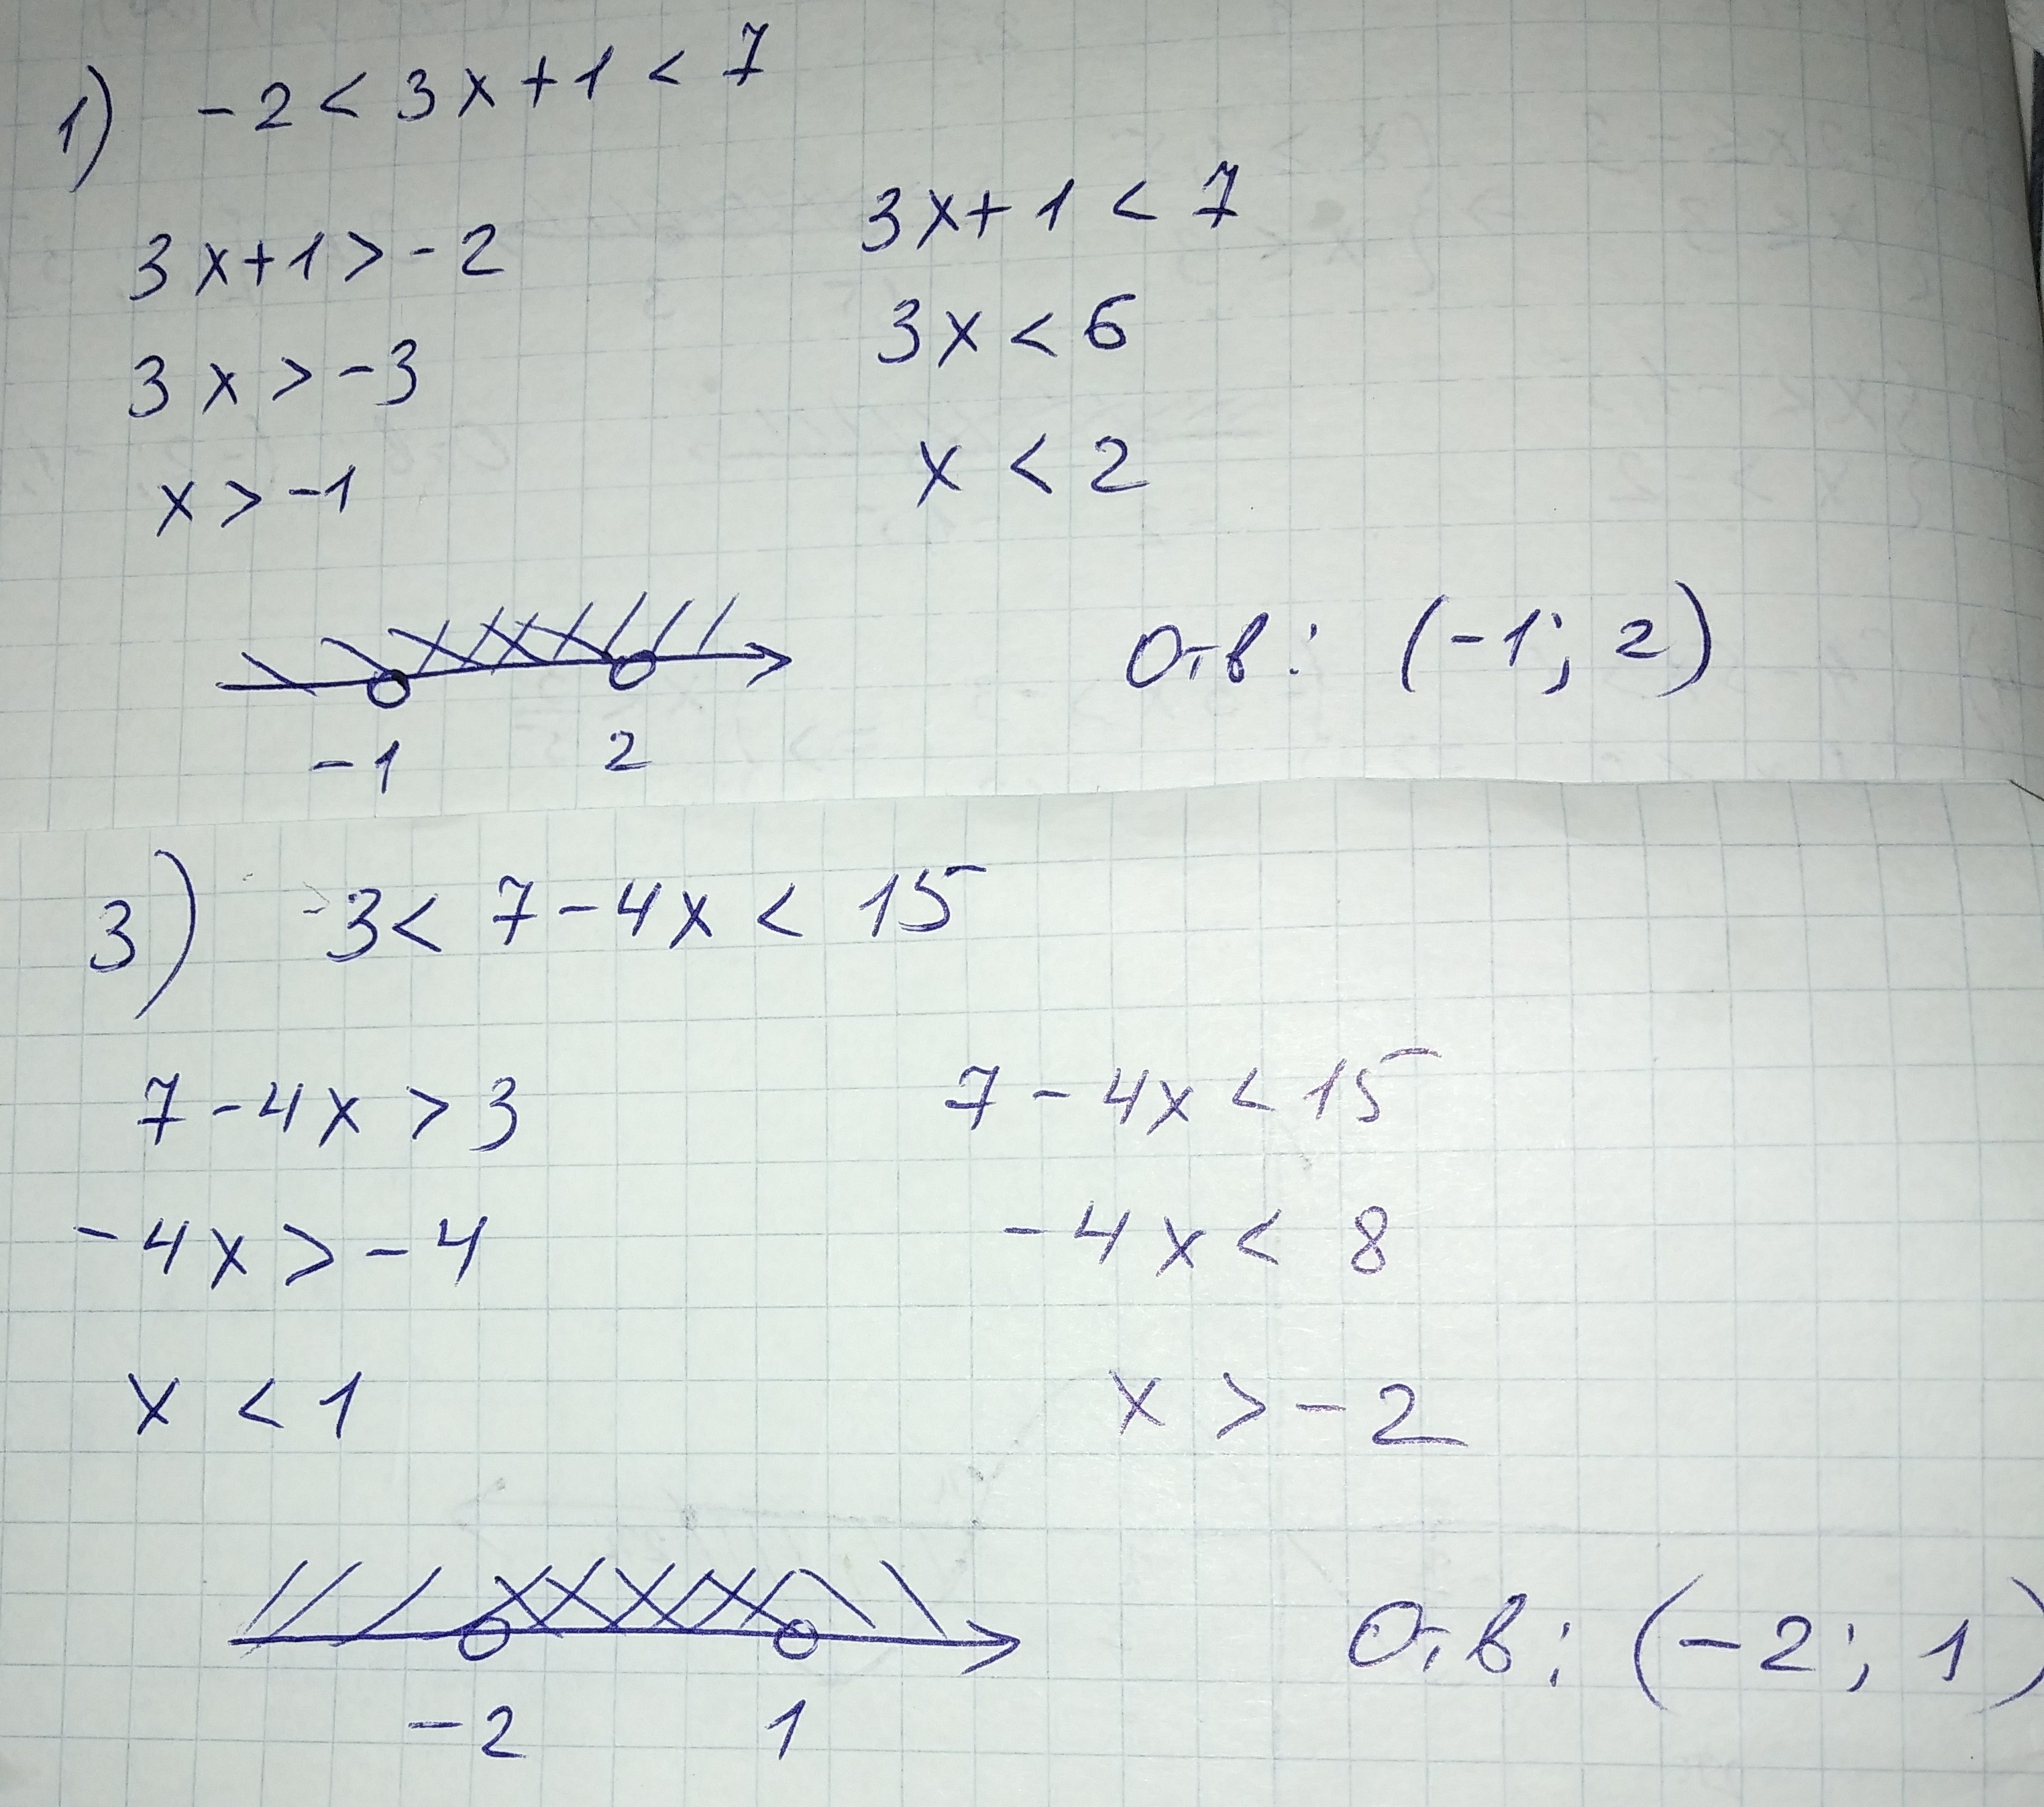 1) -2 < 3x+1 < 7
3x+1 > -2
3x+1 < 7
3x > -3
3x < 6
x > -1
x < 2
-1 2
Отв: (-1; 2)
3) 3 < 7-4x < 15
7-4x > 3
7-4x < 15
-4x > -4
-4x < 8
x < 1
x > -2
-2 1
Отв: (-2; 1)